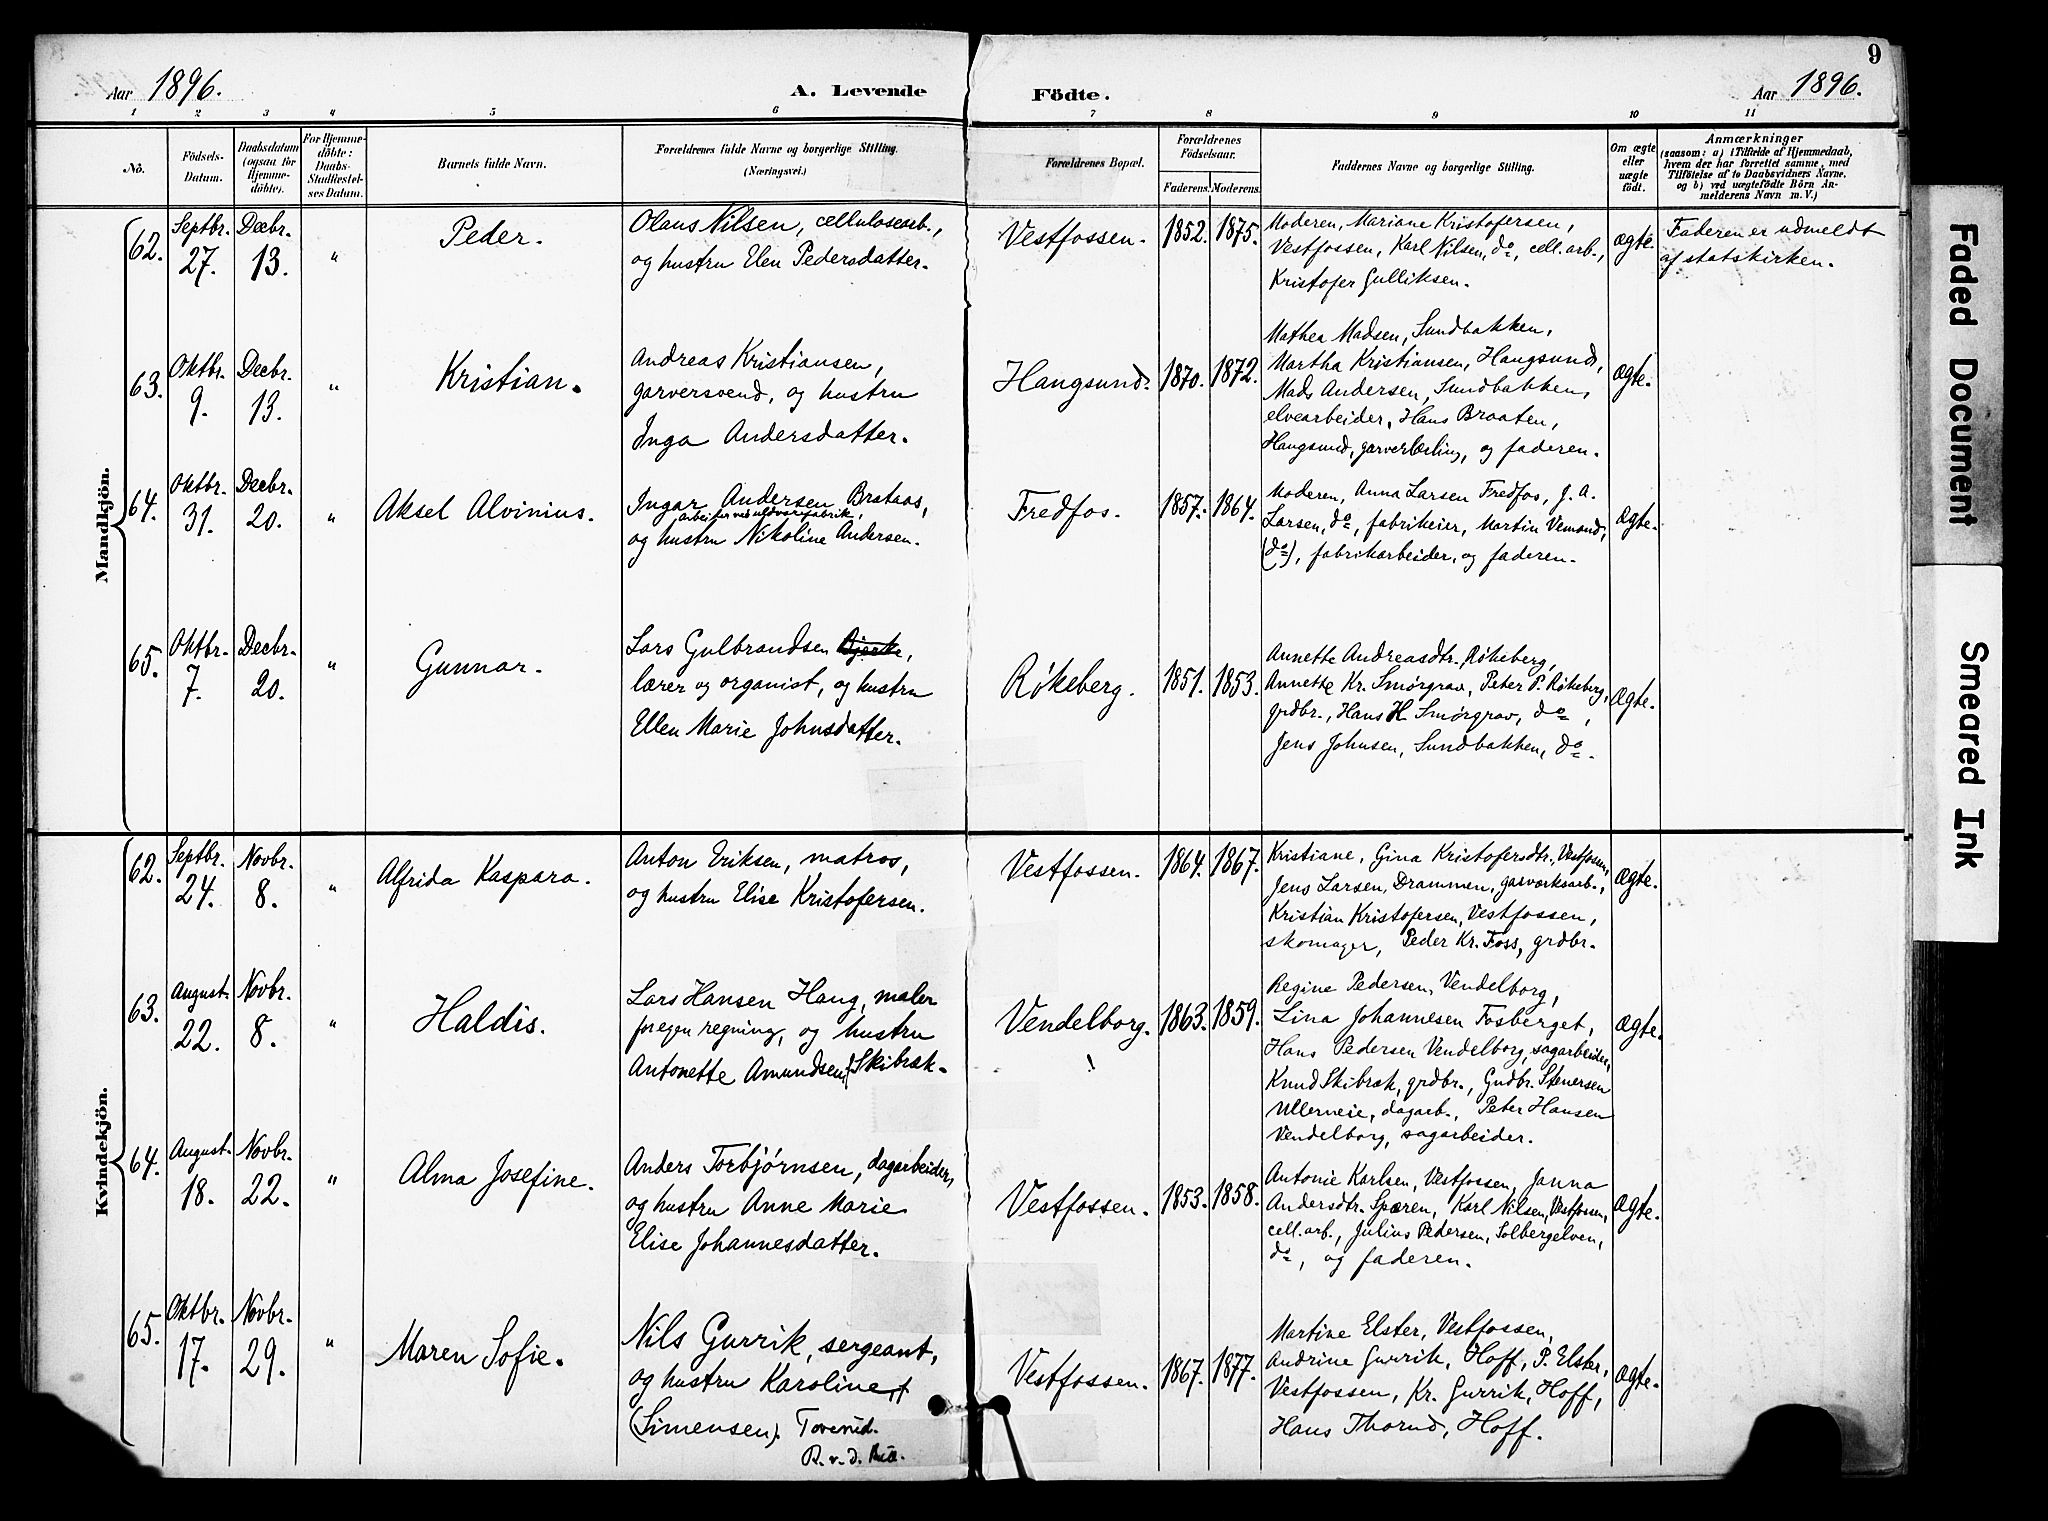 9
Aar 1896.
A. Levende Födte.
Aar 1896.
1 2 3 4 5 6 7 8 9 10 11
No.
Födsels-
Datum.
Daabsdatum
(ogsaa for
Hjemme-
döbte).
For Hjemme-
döbte:
Daabs-
Stadfæstel-
ses Datum.
Barnets fulde Navn.
Forældrenes fulde Navne og borgerlige Stilling.
(Næringsvei.)
Forældrenes Bopæl.
Forældrenes
Födselsaar.
Faderens. Moderens.
Faddernes Navne og borgerlige Stilling.
Om ægte
eller
uægte
født.
Anmærkninger
(saasom: a) i Tilfælde af Hjemmedaab,
hvem der har forrettet samme, med
Tilföielse af to Daabsvidners Navne,
og b) ved uægtefödte Börn An-
melderens Navn m. V.)
Mandkjön.
62.
Septbr.
27.
Decbr.
13.
"
Peder.
Olaus Nilsen, cellulosearb.,
og hustru Elen Pedersdatter.
Vestfossen.
1852. 1875.
Moderen, Mariane Kristofersen,
Vestfossen, Karl Nilsen, do, cell. arb.,
Kristofer Gulliksen.
ægte.
Faderen er udmeldt
af statskirken.
63.
Oktbr.
9.
Decbr.
13.
"
Kristian.
Andreas Kristiansen,
garversvend, og hustru
Inga Andersdatter.
Haugsund.
1870. 1872.
Mathea Madsen, Sundbakken,
Martha Kristiansen, Haugsund,
Mads Andersen, Sundbakken,
elvearbeider, Hans Braaten,
Haugsund, garverlærling, og faderen.
ægte.
64.
Oktbr.
31.
Decbr.
20.
"
Aksel Alvinius.
Ingar Andersen Brataas,
arbeider ved uldvarefabrik,
og hustru Nikoline Andersen.
Fredfos.
1857. 1864.
Moderen, Anna Larsen Fredfos, J. A.
Larsen, do, fabrikeier, Martin Vemond,
(do), fabrikarbeider, og faderen.
ægte.
65.
Oktbr.
7.
Decbr.
20.
"
Gunnar.
Lars Gulbrandsen Bjerke,
lærer og organist, og hustru
Ellen Marie Johnsdatter.
Røkeberg.
1851. 1853.
Annette Andreasdtr. Røkeberg,
Annette Kr. Smørgrav, Peter P. Røkeberg,
grdbr., Hans H. Smørgrav, do,
Jens Johnsen, Sundbakken, do.
ægte.
Kvindekjön.
62.
Septbr.
24.
Novbr.
8.
"
Alfrida Kaspara.
Anton Eriksen, matros,
og hustru Elise Kristofersen.
Vestfossen.
1864. 1867.
Kristiane, Gina Kristofersdtr. Vestfossen,
Jens Larsen, Drammen, garværksarb.,
Kristian Kristofersen, Vestfossen,
skomager, Peder Kr. Foss, grdbr.
ægte.
63.
August.
22.
Novbr.
8.
"
Haldis.
Lars Hansen Haug, maler
for egen regning, og hustru
Antonette Amundsen, Skibræk.
Vendelborg.
1863. 1859.
Regine Pedersen, Vendelborg,
Lina Johannesen Fosberget,
Hans Pedersen Vendelborg, sagarbeider,
Knud Skibræk, grdbr., Gudbr. Stenersen
Ullerneie, dagarb., Peter Hansen
Vendelborg, sagarbeider.
ægte.
64.
August.
18.
Novbr.
22.
"
Alma Josefine.
Anders Torbjørnsen, dagarbeider,
og hustru Anne Marie
Elise Johannesdatter.
Vestfossen.
1853. 1858.
Antonie Karlsen, Vestfossen, Janna
Andersdtr. Spæren, Karl Nilsen, Vestfossen,
cell. arb., Julius Pedersen, Solbergelven,
do, og faderen.
ægte.
65.
Oktbr.
17.
Novbr.
29.
"
Maren Sofie.
Nils Gurrik, sergeant,
og hustru Karoline
(Simensen). Torerud.
R. v. d.
Vestfossen.
1867. 1877.
Martine Elster, Vestfossen,
Andrine Gurrik, Hoff, P. Elster,
Vestfossen, Kr. Gurrik, Hoff,
Hans Thorud, Hoff.
ægte.
Faded Document
Smeared Ink